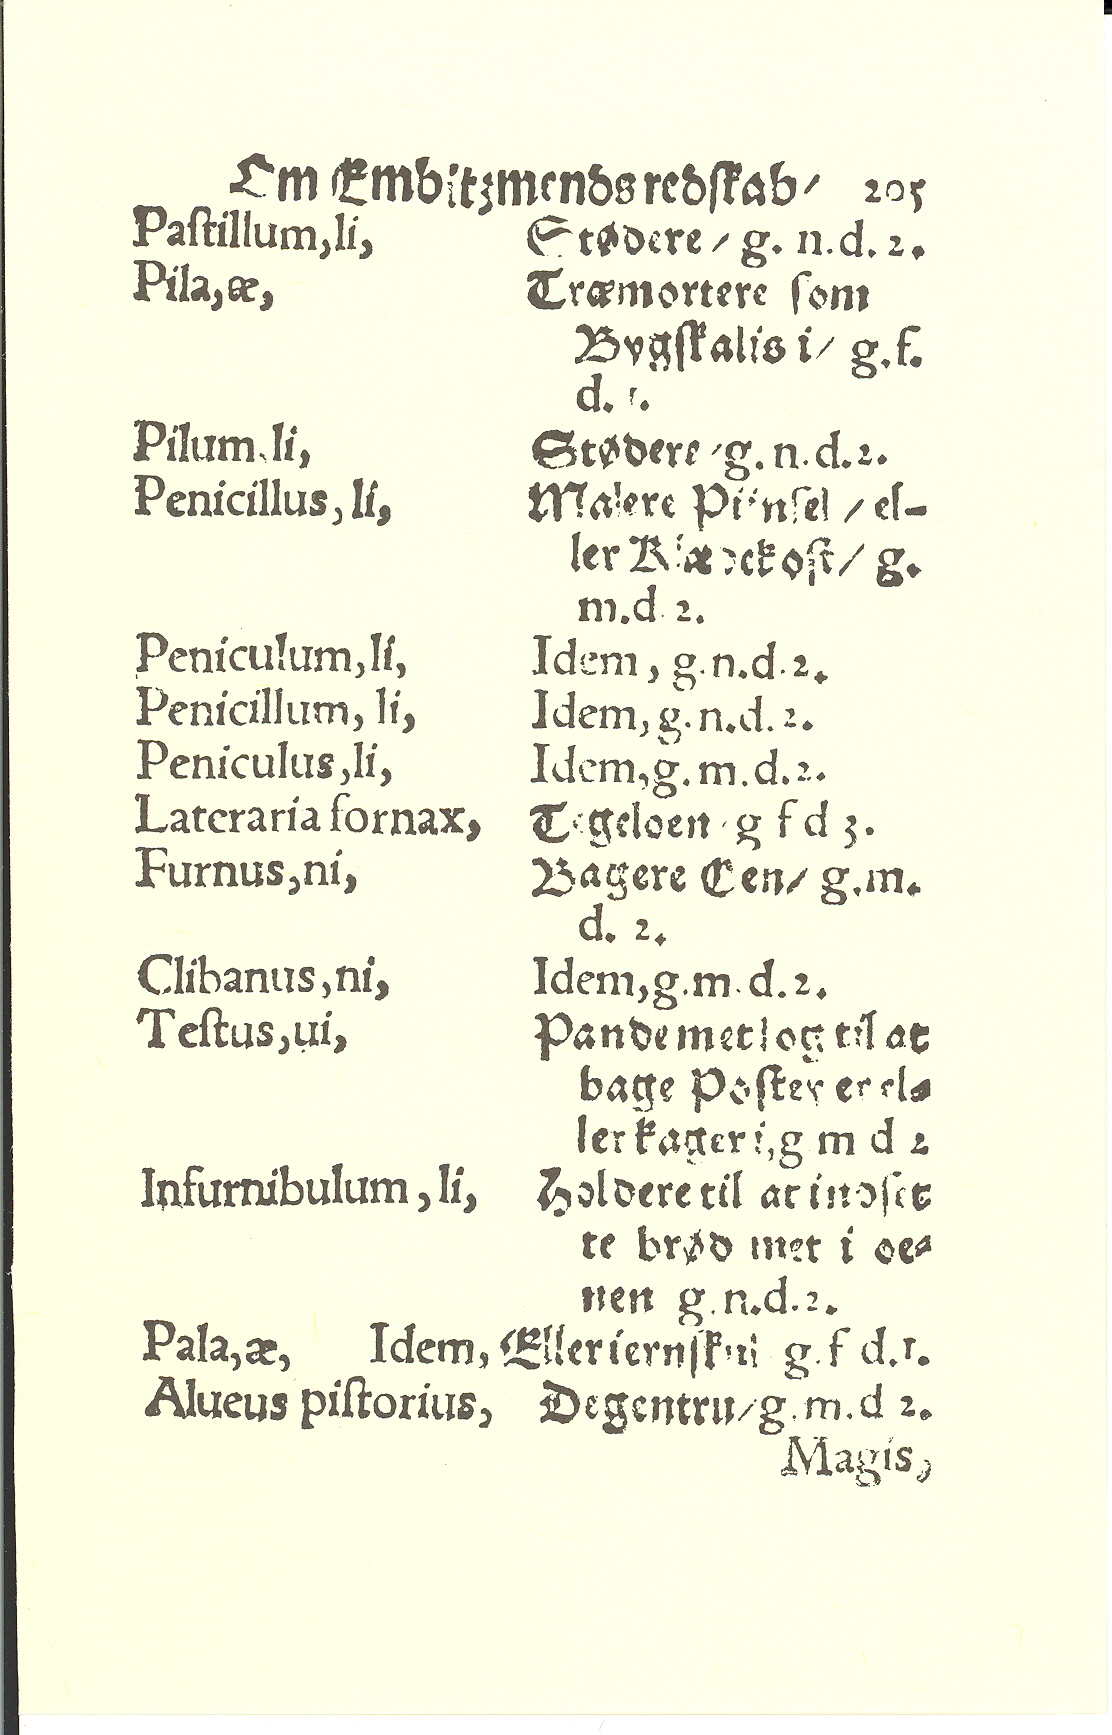 Om Embitzmends redſkab/ 205
Paſtillum,li, Stødere/ g. n.d. 2.
Pila,æ, Træmortere ſom
Bygſkalis i/ g.f.
d. 1.
Pilum,li, Stødere/g.n.d.2.
Penicillus,li, Malere Piinſel/el-
ler Klædekoſt/ g.
m.d 2.
Peniculum,li, Idem, g.n.d.2.
Penicillum, li, Idem,g.n.d.2.
Peniculus,li, Idem,g.m.d.2.
Lateraria fornax, Tegeloen/g f d 3.
Furnus,ni, Bagere Oen/ g.m.
d. 2.
Clibanus,ni, Idem,g.m.d.2.
Teſtus,ui, Pande met log til at
bage Poſteyer el-
ler kager i,g m d 2
Infurnibulum,li, Holdere til at indſet
te brød met i oe-
nen g.n.d.2.
Pala,æ, Idem, Eller iernſkul g.f d.1.
Alueus piſtorius, Degentru/g.m.d 2.
Magis,